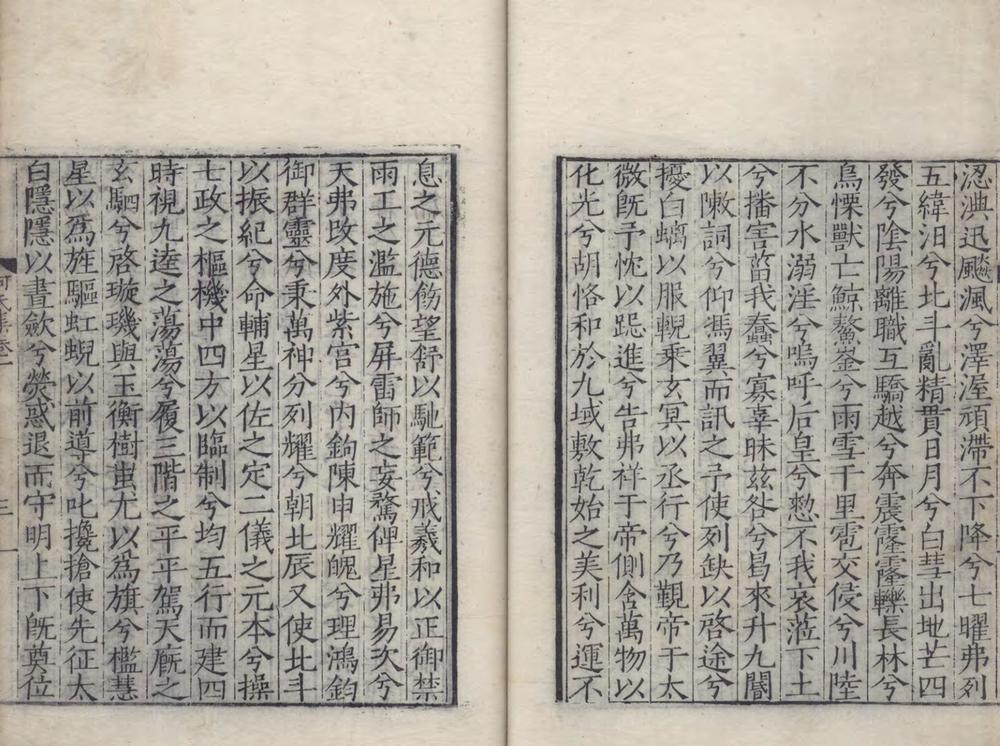 涊淟迅飈渢兮澤滛頑滯不下降兮七曜弗列
五緯汨兮北斗亂精貫日月兮白彗出地芒四
發兮陰陽離職互驕越兮奔震霳霳轢長林兮
鳥慄獸亡鯨鰲崟兮雨雪千里雹交侵兮川陸
不分水溺淫兮嗚呼后皇兮憗不我哀蒞下土
兮播害菑我蠢兮寡辜昧茲咎兮曷來升九閽
以敶詞兮仰馮翼而訊之予使列缺以啓途兮
擾白螭以服輗乘玄冥以丞行兮乃覲帝于太
微既予忱以跽進兮告弗祥于帝側含萬物以
化光兮胡恪和於九域敷乾始之美利兮運不
息之元德飭望舒以馳範兮戒羲和以正御禁
雨工之濫施兮屏雷師之妄驚俾星弗易次兮
天弗改度外紫宮兮內鉤陳申耀魄兮理鴻鈞
御群靈兮秉萬神分列耀兮朝北辰又使北斗
以振紀兮命輔星以佐之定二儀之元本兮操
七政之樞機中四方以臨制兮均五行而建四
時視九逵之蕩蕩兮履三階之平平駕天廐之
玄駟兮啓璇璣與玉衡樹蚩尤以為旗兮檻慧
星以為旌驅虹蜺以前導兮叱攙搶使先征太
白隱隱以晝斂兮熒惑退而守明上下既奠位